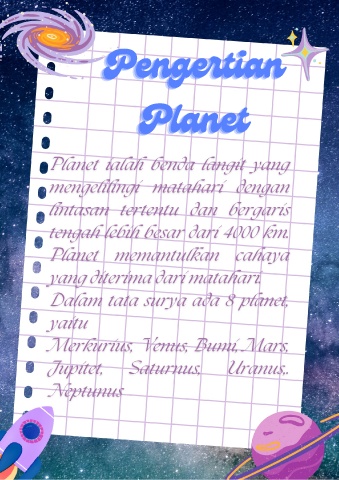 Pengertian
Planet
Planet ialah benda langit yang
mengelilingi matahari dengan
lintasan tertentu dan bergaris
tengah lebih besar dari 4000 km.
Planet memantulkan cahaya
yang diterima dari matahari.
Dalam tata surya ada 8 planet,
yaitu
Merkurius, Venus, Bumi, Mars,
Jupitet, Saturnus, Uranus,
Neptunus